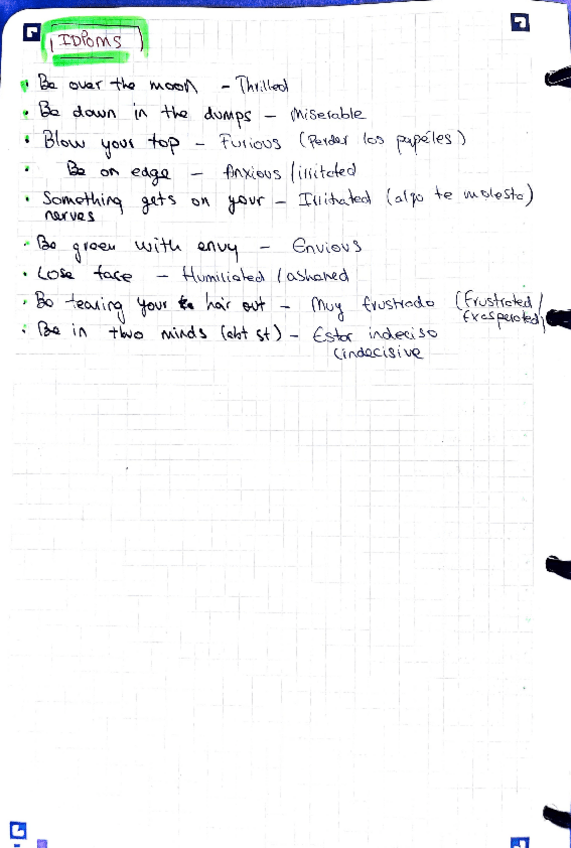 IDIOMS
• Be over the moon - Thrilled
• Be down in the dumps - Miserable
• Blow your top - Furious (Perder los papéles)
• Be on edge - Anxious / irritated
• Something gets on your - Irritated (algo te molesta)
nerves
• Be green with envy - Envious
• Lose face - Humiliated / ashamed
• Be tearing your hair out - Muy frustrado (Frustrated /
Exasperated)
• Be in two minds (abt st) - Estar indeciso
(indecisive